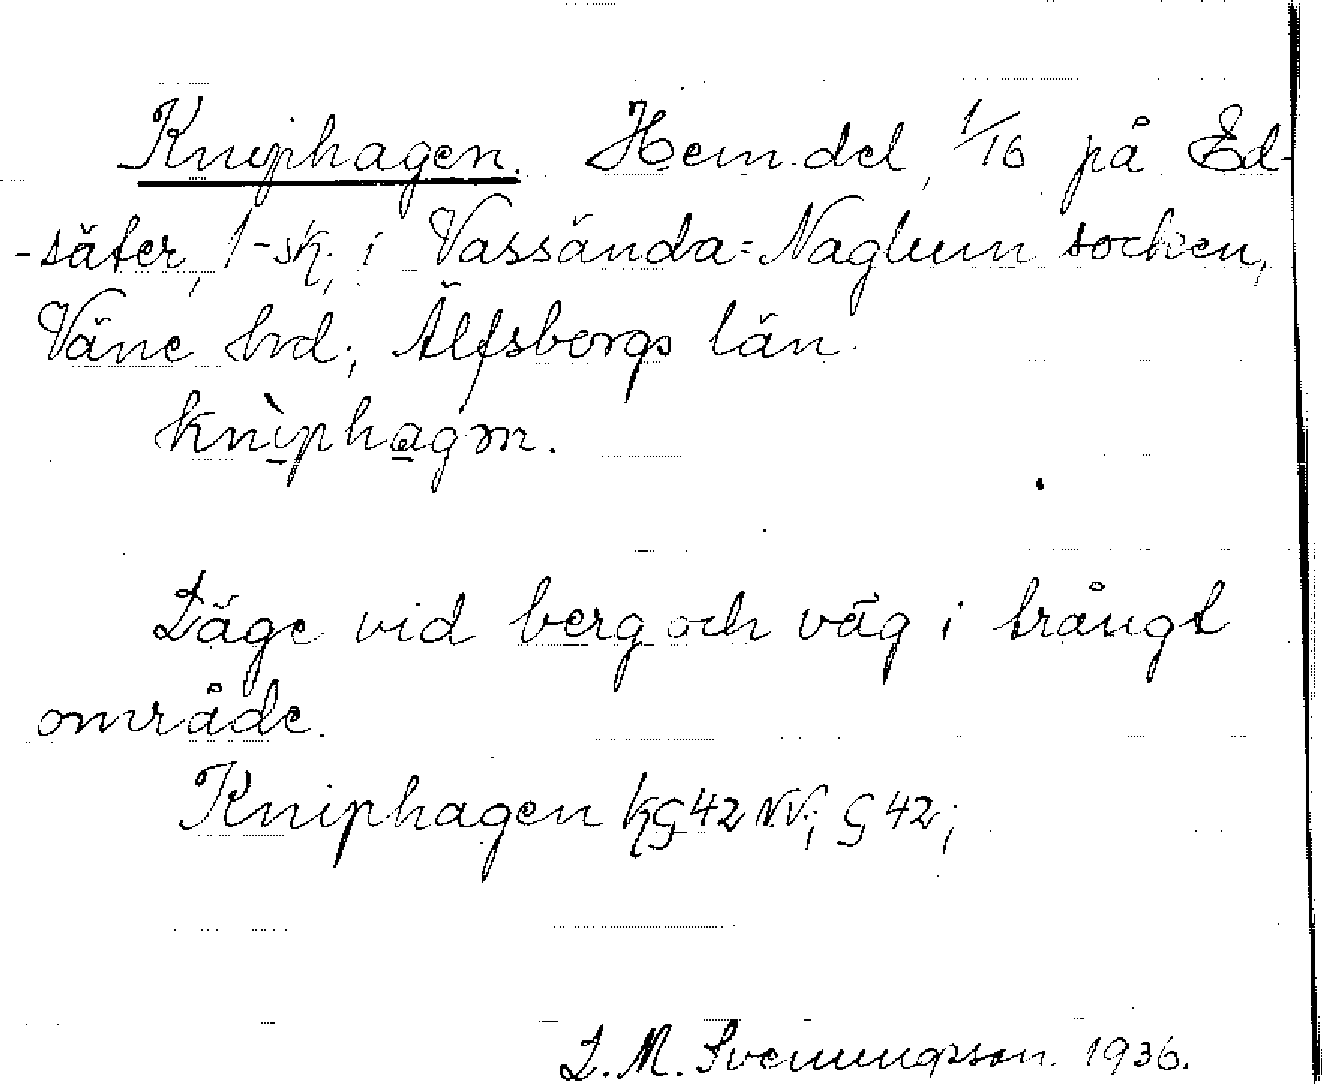 Kniphagen. Hem.del, 1/16 på Ed-
-säter, 1-sk; i Vassända=Naglum socken,
Väne hrd; Älfsborgs län.
Läge vid berg och väg i trångt
område.
Kniphagen KG 42 NV; G 42;
L. M. Svenungsson. 1936.